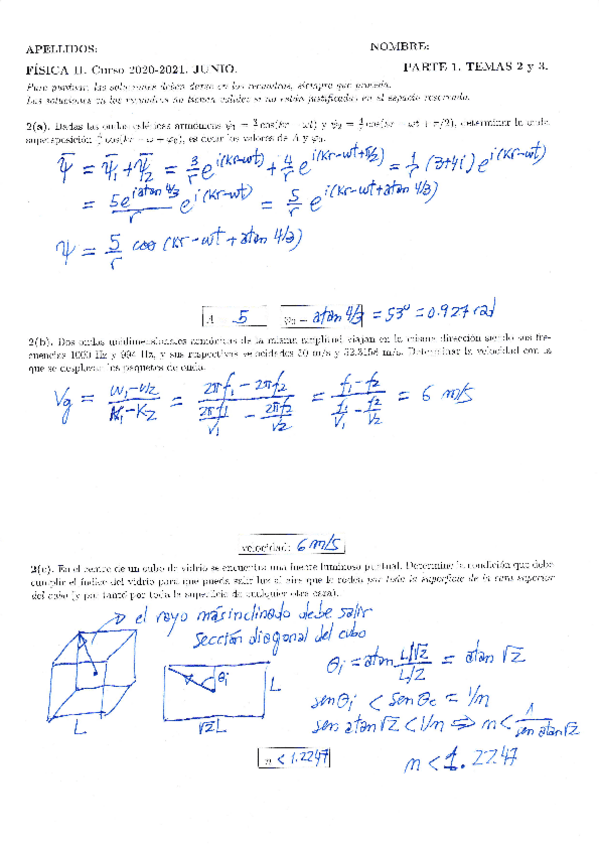 APELLIDOS: NOMBRE:
FÍSICA II. Curso 2020-2021. JUNIO. PARTE 1. TEMAS 2 y 3.
Para puntuar, las soluciones deben darse en los recuadros, siempre que proceda.
Las soluciones en los recuadros no tienen validez si no están justificadas en el espacio reservado.
2(a). Dadas las ondas esféricas armónicas ψ₁ = 3/r cos(kr − ωt) y ψ₂ = 4/r cos(kr − ωt + π/2), determinar la onda
superposición cos(kr − ωt + φ₀), es decir los valores de A y φ₀.
Ψ̄ = Ψ̄₁ + Ψ̄₂ = 3/r e^{i(kr-ωt)} + 4/r e^{i(kr-ωt+π/2)} = 1/r (3+4i) e^{i(kr-ωt)}
= 5e^{i atan 4/3}/r e^{i(kr-ωt)} = 5/r e^{i(kr-ωt+atan 4/3)}
Ψ = 5/r cos (kr-ωt+atan 4/3)
A = 5 φ₀ = atan 4/3 = 53º = 0.927 rad
2(b). Dos ondas unidimensionales armónicas de la misma amplitud viajan en la misma dirección siendo sus fre-
cuencias 1000 Hz y 994 Hz, y sus respectivas velocidades 30 m/s y m/s. Determinar la velocidad con la
que se desplazan los paquetes de onda.
Vg = (ω₁-ω₂)/(K₁-K₂) = (2πf₁ - 2πf₂)/(2πf₁/V₁ - 2πf₂/V₂) = (f₁-f₂)/(f₁/V₁ - f₂/V₂) = 6 m/s
velocidad: 6 m/s
2(c). En el centro de un cubo de vidrio se encuentra una fuente luminosa puntual. Determine la condición que debe
cumplir el índice del vidrio para que pueda salir luz al aire que le rodea por toda la superficie de la cara superior
del cubo (y por tanto por toda la superficie de cualquier otra cara).
el rayo más inclinado debe salir
sección diagonal del cubo
θi = atan (L/√2)/(L/2) = atan √2
θi L
sen θi < sen θc = 1/n
sen atan √2 < 1/n ⇒ n < 1/(sen atan √2)
L √2L
n < 1.2247
n < 1.2247